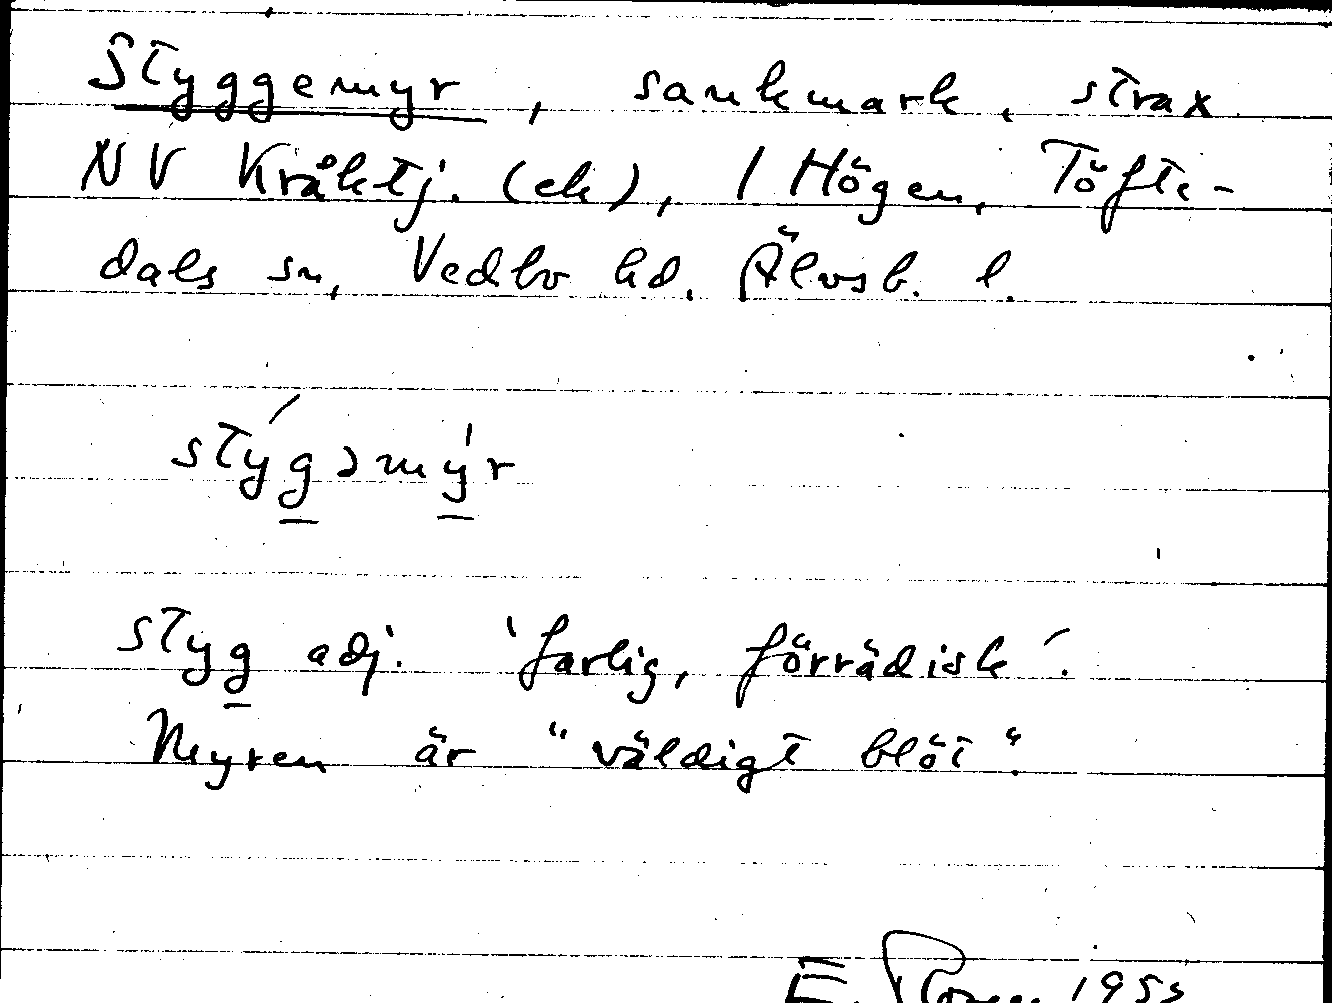 Styggemyr, sankmark, strax
NV Kråktj. (ek), 1 Högen, Töfte-
dals sn, Vedbo hd. Älvsb. l.
stýgəmy̍r
styg adj. 'farlig, förrädisk'.
Myren är "väldigt blöt".
E. 1953